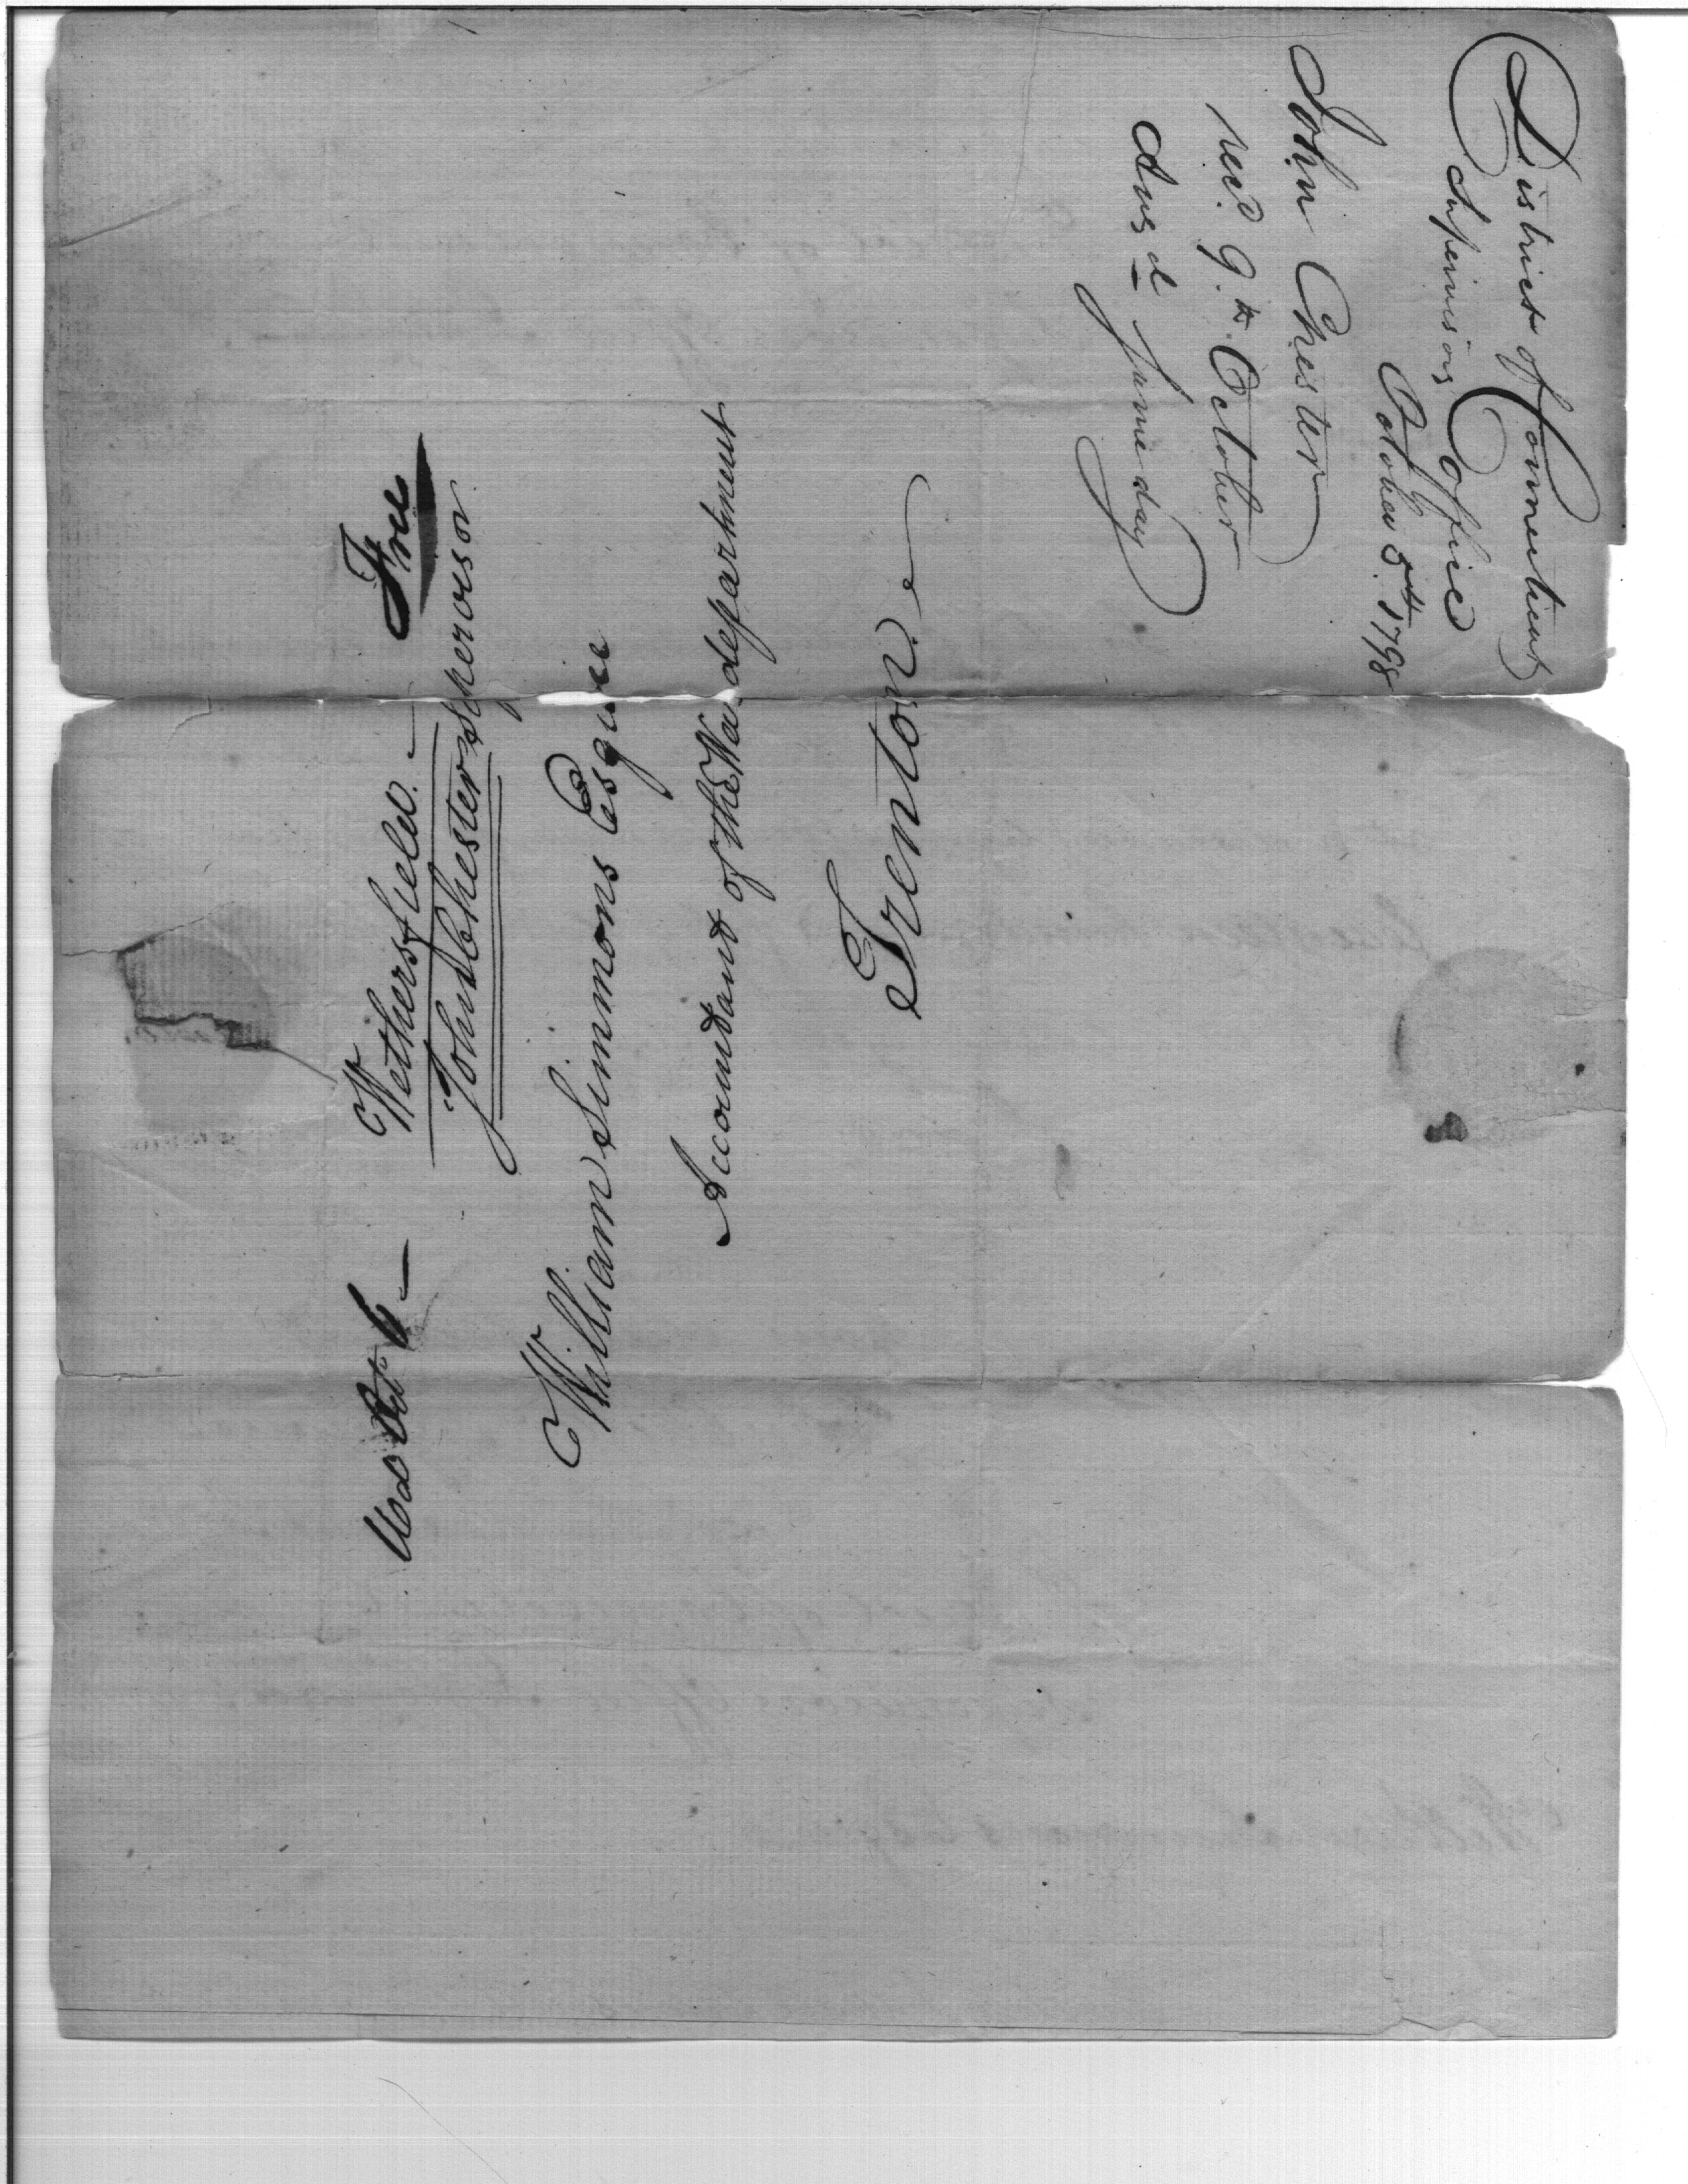 District of Connecticut
Supervisors Office
October 5th 1798
John Chester
recd. 9.th October
Answd same day
Wethersfield. — Free
John Chester Supervisor
William Simmons Esquire
Accountant of the War department
Trenton